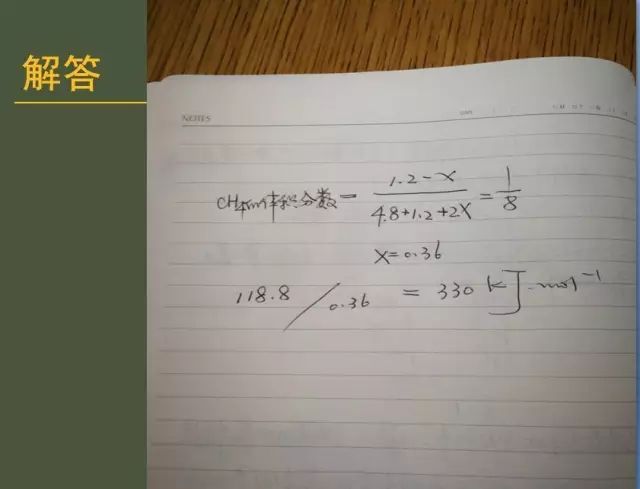 解答
NOTES
DATE
CH4的体积分数= (1.2-x)/(4.8+1.2+2x) = 1/8
x=0.36
118.8/0.36 = 330 kJ·mol⁻¹